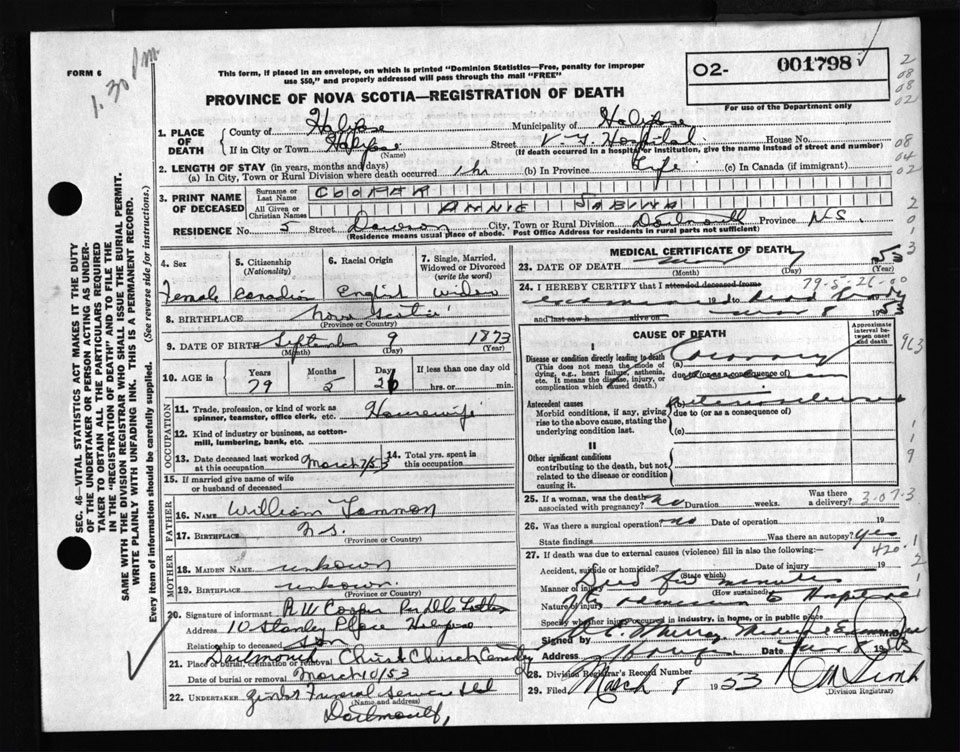 1.30 pm
FORM 6
This form, if placed in an envelope, on which is printed "Dominion Statistics—Free, penalty for improper
use $50," and properly addressed will pass through the mail "FREE"
PROVINCE OF NOVA SCOTIA—REGISTRATION OF DEATH
02- 001798
For use of the Department only
2
08
08
02
08
04
02
2
0
1
3
1. PLACE OF DEATH
County of Halifax Municipality of Halifax
If in City or Town Halifax (Name) Street V-G Hospital House No.
(If death occurred in a hospital or institution, give the name instead of street and number)
2. LENGTH OF STAY (in years, months and days)
(a) In City, Town or Rural Division where death occurred 1 hr (b) In Province Life (c) In Canada (if immigrant)
3. PRINT NAME OF DECEASED
Surname or Last Name
All Given or Christian Names ANNIE SABINA
RESIDENCE No. 5 Street Dawson City, Town or Rural Division Dartmouth Province N.S.
(Residence means usual place of abode. Post Office Address for residents in rural parts not sufficient)
4. Sex Female
5. Citizenship (Nationality) Canadian
6. Racial Origin English
7. Single, Married, Widowed or Divorced (write the word) Widow
8. BIRTHPLACE Nova Scotia (Province or Country)
9. DATE OF BIRTH September (Month) 9 (Day) 1873 (Year)
10. AGE is Years 79 Months 5 Days 26 If less than one day hrs. or min.
OCCUPATION
11. Trade, profession, or kind of work as spinner, teamster, office clerk, etc. Housewife
12. Kind of industry or business, as cotton-mill, lumbering, bank, etc.
13. Date deceased last worked at this occupation March 7/53 14. Total yrs. spent in this occupation
15. If married give name of wife or husband of deceased
FATHER
16. NAME William
17. BIRTHPLACE N.S. (Province or Country)
MOTHER
18. MAIDEN NAME unkown
19. BIRTHPLACE unkown. (Province or Country)
20. Signature of informant
Address 10 Stanley Place Halifax
Relationship to deceased Son
21. Place of burial, cremation or removal Christ Church
Date of burial or removal March 10/53
22. UNDERTAKER Funeral Service Ltd
(Name and address)
Dartmouth,
SEC. 46—VITAL STATISTICS ACT MAKES IT THE DUTY
OF THE UNDERTAKER OR PERSON ACTING AS UNDER-
TAKER TO OBTAIN ALL THE PARTICULARS REQUIRED
IN THE "REGISTRATION OF DEATH" AND TO FILE THE
SAME WITH THE DIVISION REGISTRAR WHO SHALL ISSUE THE BURIAL PERMIT.
WRITE PLAINLY WITH UNFADING INK. THIS IS A PERMANENT RECORD.
Every item of information should be carefully supplied. (See reverse side for instructions.)
MEDICAL CERTIFICATE OF DEATH
23. DATE OF DEATH (Month) (Day) 53 (Year)
24. I HEREBY CERTIFY that I attended deceased from
79-5-26-00
19 to dead body
and last saw h alive on 8 1953
CAUSE OF DEATH
Approximate interval between onset and death
I
Disease or condition directly leading to death
(This does not mean the mode of dying, e.g., heart failure, asthenia, etc. It means the disease, injury, or complication which caused death.)
(a) Coronary
due to (or as a consequence of)
Antecedent causes
Morbid conditions, if any, giving rise to the above cause, stating the underlying condition last.
(b) Arteriosclerosis
due to (or as a consequence of)
(c)
II
Other significant conditions
contributing to the death, but not related to the disease or condition causing it.
25. If a woman, was the death associated with pregnancy? no Duration weeks. Was there a delivery?
3-07-3
26. Was there a surgical operation? no Date of operation 19
State findings Was there an autopsy? yes
420.1
27. If death was due to external causes (violence) fill in also the following:—
Accident, suicide or homicide? (State which) Date of injury 19
Manner of injury Died few minutes (How sustained)
Nature of injury after admission to Hospital
Specify whether injury occurred in industry, in home, or in public place
Signed by Murray Medical Examiner M.D.
Address Halifax Date 1953
28. Division Registrar's Record Number
29. Filed March 8 1953
(Division Registrar)